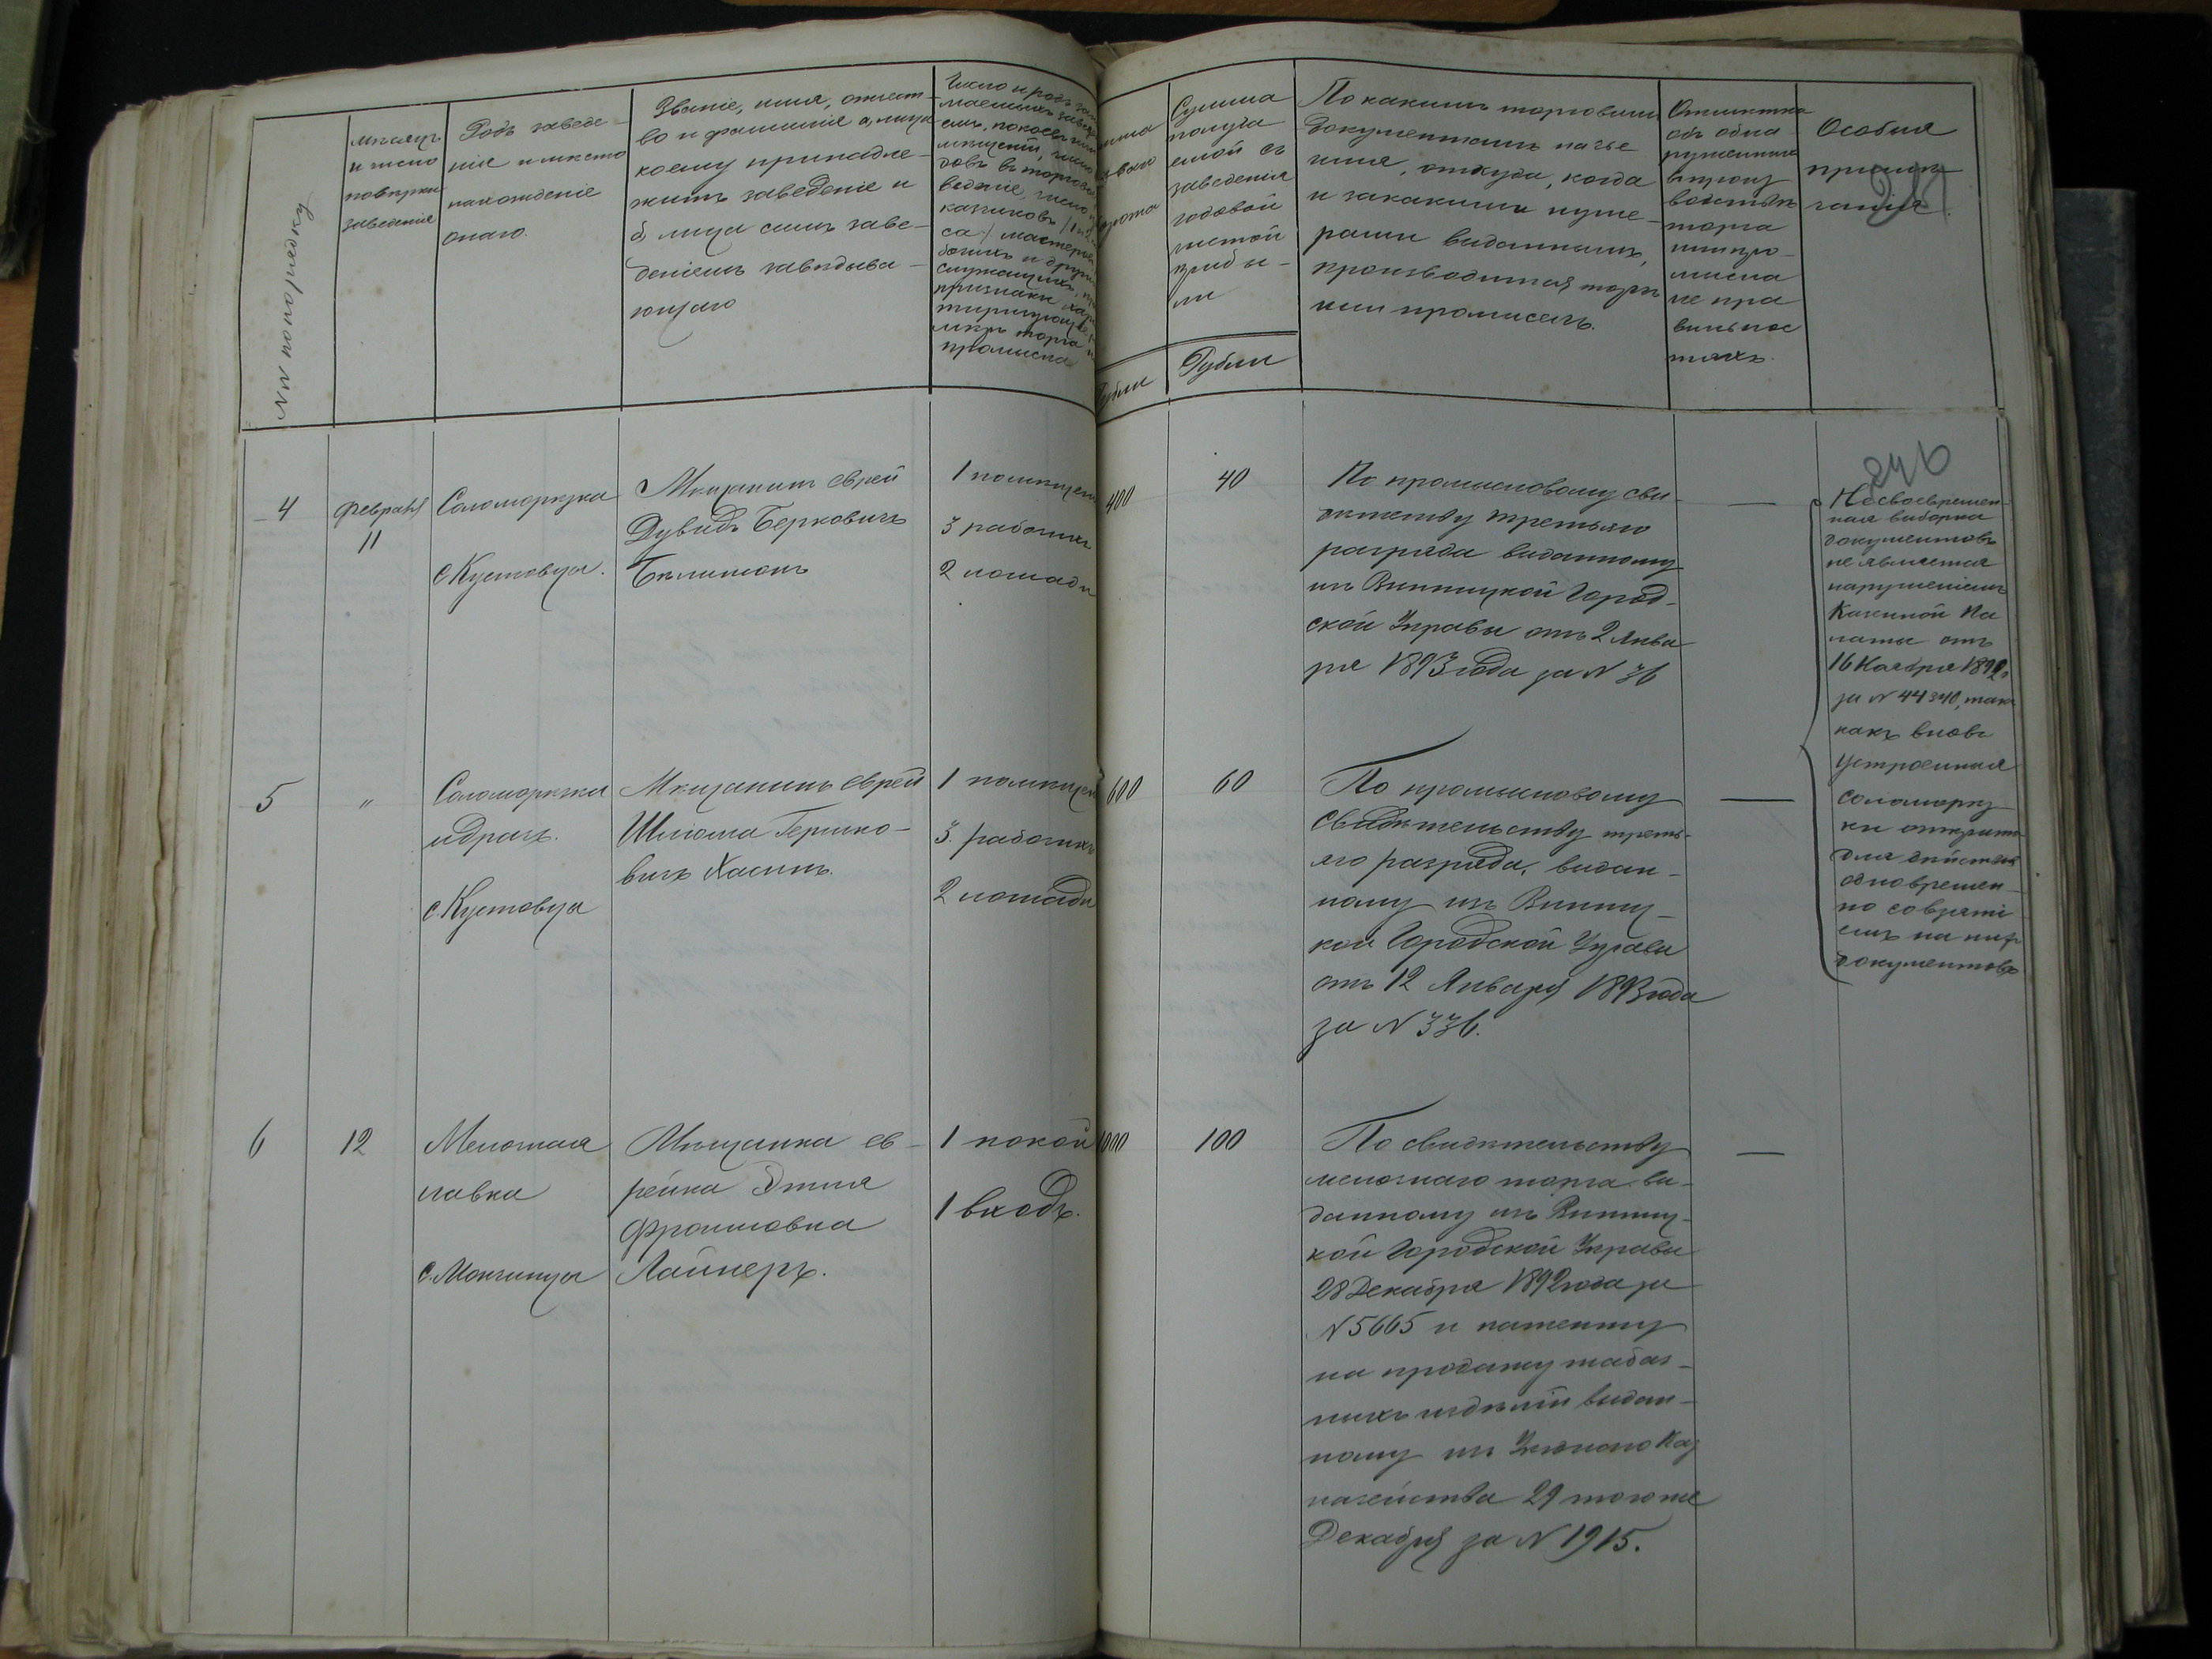 NN по порядку
мѣсяцъ
и число
повѣрки
заведенія
Родъ заведе-
нія и место
нахожденіе
онаго.
Званіе, имя, отчест-
во и фамилія а, лица
коему принадле-
житъ заведеніе и
б, лица симъ заве-
деніемъ завѣдыва-
ющаго
Число и родъ
промысла
Рубли
Сумма
получа
емой съ
заведенія
годовой
чистой
прибы-
ли
Рубли
По какимъ торговымъ
документамъ на чье
имя, откуда, когда
и за какими нуме-
рами выданнымъ,
производится торгъ
или промыселъ.
Отмѣтка
объ обна
руженныхъ
въ произ
водствѣ
торга
или про-
мысла
не пра
вильнос
тяхъ.
Особыя
примѣ
чанія.
246
4
Февраля
11
Соломорѣзка
с Кустовцы.
Мѣщанинъ еврей
Дувидъ Берковичъ
1 помѣщен
3 рабочихъ
2 лошади
400
40
По промысловому сви-
дѣтельству третьяго
разряда выданному
изъ Винницкой Город-
ской Управы отъ 2 Янва
ря 1893 года за N 36
—
Несвоевремен-
ная выборка
документовъ
не является
нарушеніемъ
Казенной Па
латы отъ
16 Ноября 1892г
за N 44340, такъ
какъ вновь
устроенная
соломорѣз
ки открыты
для дѣйствія
одновремен-
но со взяті
емъ на нихъ
документовъ
5
"
Соломорѣзка
и драчъ.
с. Кустовцы
Мѣщанинъ еврей
Шлиома Гершко-
вичъ Хасинъ.
1 помѣщен
3. рабочихъ
2 лошади
600
60
По промысловому
свидѣтельству треть-
яго разряда, выдан-
ному изъ Винниц-
кой Городской Управы
отъ 12 Января 1893 года
за N 336.
—
6
12
Мелочная
лавка
с. Мончинцы
Мѣщанка ев-
рейка Этля
Фроимовна
Лайнеръ.
1 покой
1 входъ.
1000
100
По свидѣтельству
мелочнаго торга вы-
данному изъ Винниц-
кой Городской Управы
28 Декабря 1892 года за
N 5665 и патенту
на продажу табач-
ныхъ издѣлій выдан-
ному изъ Уѣзднаго Каз
начейства 29 того же
Декабря за N 1915.
—